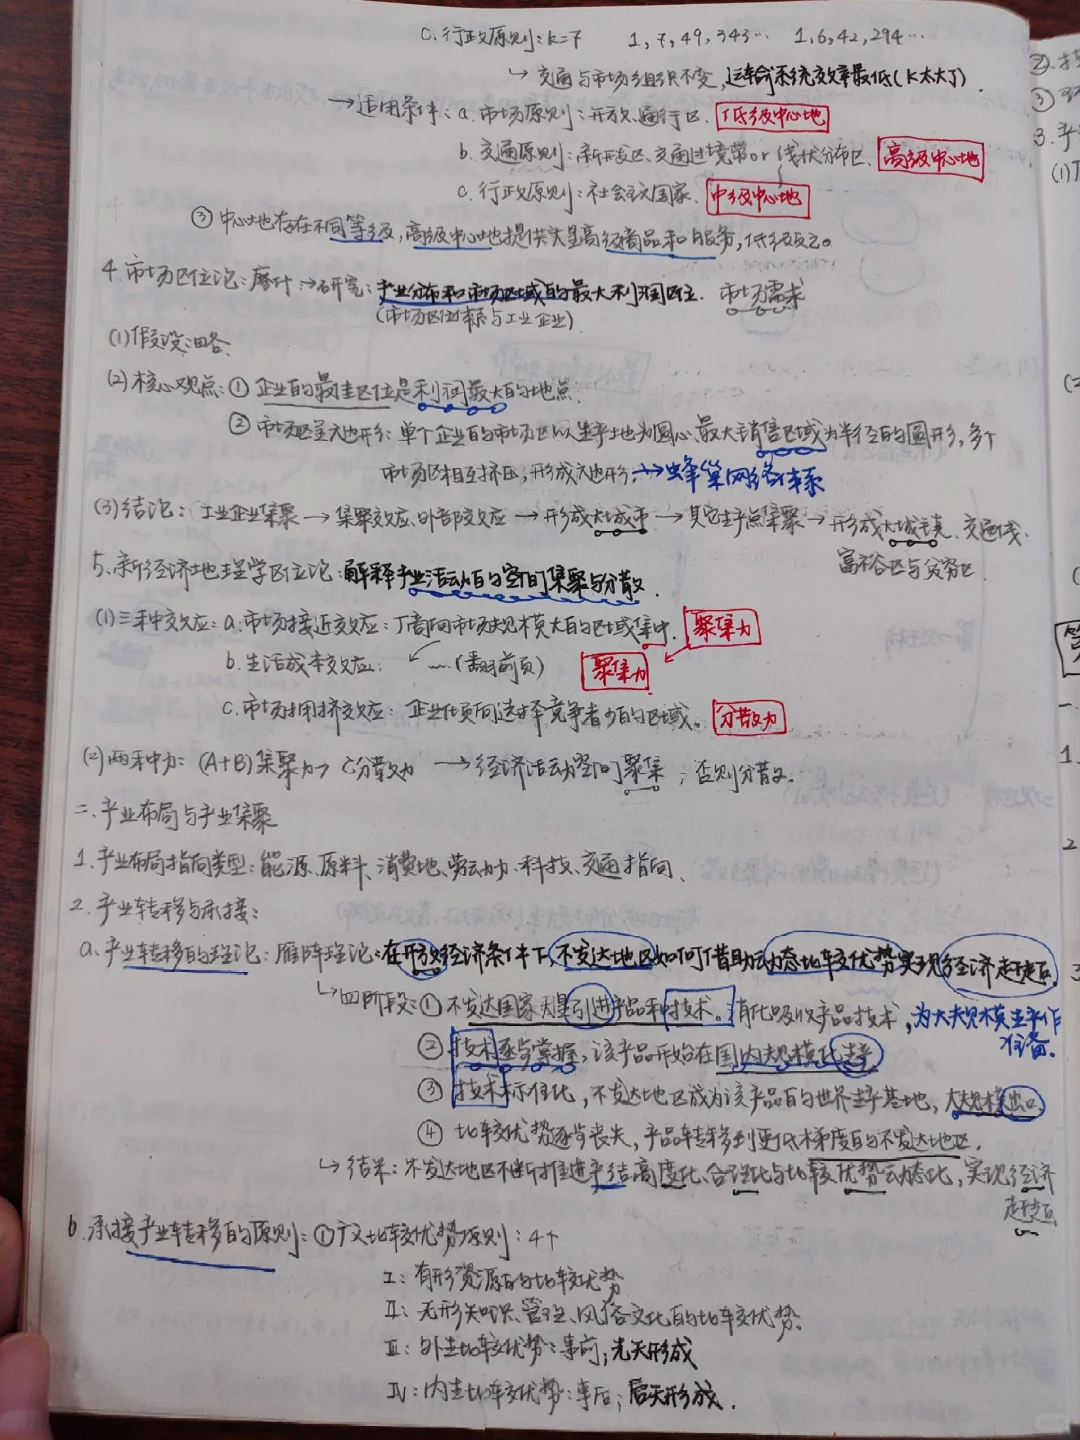 C.行政原则:k=7 1,7,49,343… 1,6,42,294…
↳ 交通与市场组织不变,运输系统效率最低(K太大了).
→适用条件: a.市场原则:开放、通行区. 低级中心地
b.交通原则:新开发区、交通过境带or线状分布区. 高级中心地
c.行政原则:社会主义国家. 中级中心地
③中心地存在不同等级,高级中心地提供大量高级商品和服务,低级反之。
4.市场区位论:廖什→研究:产业分布和市场区域的最大利润区位. 市场需求
(市场区位体系与工业企业)
(1)假设:略.
(2)核心观点:①企业的最佳区位是利润最大的地点.
②市场区呈六边形:单个企业的市场区以生产地为圆心、最大销售区域为半径的圆形,多个
市场区相互挤压,形成六边形.→蜂巢网络体系
(3)结论:工业企业集聚→集聚效应、外部效应→形成大城市→其它生产点集聚→形成大城镇、交通线.
富裕区与贫穷区.
5.新经济地理学区位论:解释产业活动的空间集聚与分散.
(1)三种效应:a.市场接近效应:厂商向市场规模大的区域集中. 聚集力
b.生活成本效应: ↙ …(翻前页) 聚集力
c.市场拥挤效应: 企业倾向选择竞争者少的区域。 分散力
(2)两种力:(A+B)集聚力>C分散力 →经济活动空间聚集;否则分散.
二.产业布局与产业集聚
1.产业布局指向类型:能源、原料、消费地、劳动力、科技、交通指向.
2.产业转移与承接:
a.产业转移的理论:雁阵理论:在开放经济条件下,不发达地区如何借助动态比较优势实现经济赶超.
↳四阶段:①不发达国家大量引进产品和技术。消化吸收产品技术,为大规模生产作
准备.
②技术逐步掌握,该产品开始在国内规模化生产
③技术标准化,不发达地区成为该产品的世界生产基地,大规模出口.
④比较优势逐步丧失,产品转移到更低梯度的不发达地区.
↳结果:不发达地区不断推进产结高度化、合理化与比较优势动态化,实现经济
赶超
b.承接产业转移的原则:①广义比较优势原则:4个
I:有形资源的比较优势
II:无形知识、管理、风俗文化的比较优势.
III:外生比较优势:事前;先天形成
IV:内生比较优势:事后;后天形成.